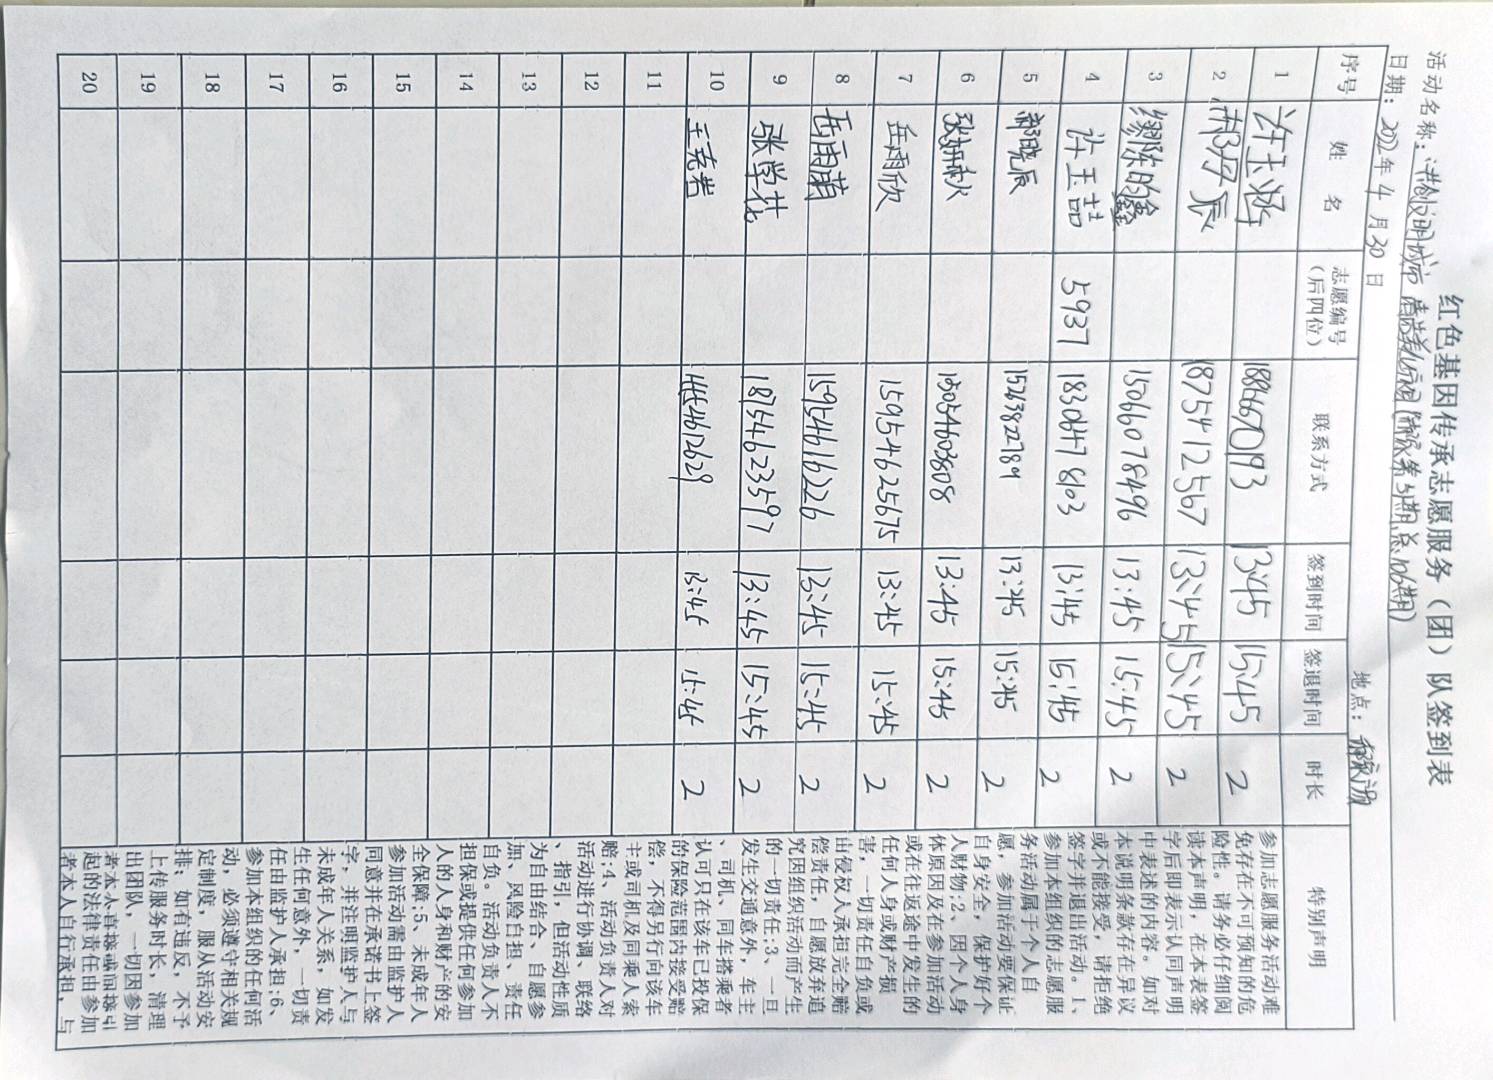 红色基因传承志愿服务（团）队签到表
活动名称：
日期：2022年4月30日
地点：
序号 姓名 志愿编号（后四位） 联系方式 签到时间 签退时间 时长 特别声明
1 许玉涵 13:45 15:45 2
2 18754612567 13:45 15:45 2
3 15066078496 13:45 15:45 2
4 许玉喆 5937 18306478103 13:45 15:45 2
5 郝晓辰 15263822789 13:45 15:45 2
6 15054603808 13:45 15:45 2
7 岳雨欣 15954625675 13:45 15:45 2
8 岳雨萌 15954616226 13:45 15:45 2
9 张学花 18754623597 13:45 15:45 2
10 王克岩 13:45 15:45 2
11
12
13
14
15
16
17
18
19
20
参加志愿服务活动难
免存在不可预知的危
险性。请务必仔细阅
读本声明，在本表签
字后即表示认同声明
中表述的内容。如对
本说明条款存在异议
或不能接受，请拒绝
签字并退出活动。1、
参加本组织的志愿服
务活动属于个人自
愿，参加活动要保证
自身安全，保护好个
人财物;2、因个人身
体原因及在参加活动
或在往返途中发生的
任何人身或财产损
害，一切责任自负或
由侵权人承担完全赔
偿责任，自愿放弃追
究因组织活动而产生
的一切责任;3、一旦
发生交通意外，车主
、司机、同车搭乘者
认可只在该车已投保
的保险范围内接受赔
偿，不得另行向该车
主或司机及同乘人索
赔;4、活动负责人对
活动进行协调、联络
、指引，但活动性质
为自由结合、自愿参
加、风险自担、责任
自负。活动负责人不
担保或提供任何参加
人的人身和财产的安
全保障;5、未成年人
参加活动需由监护人
同意并在承诺书上签
字，并注明监护人与
未成年人关系，如发
生任何意外，一切责
任由监护人承担;6、
参加本组织的任何活
动，必须遵守相关规
定制度，服从活动安
排；如有违反，不予
上传服务时长，清理
出团队，一切因参加
者本人直接或间接引
起的法律责任由参加
者本人自行承担，与